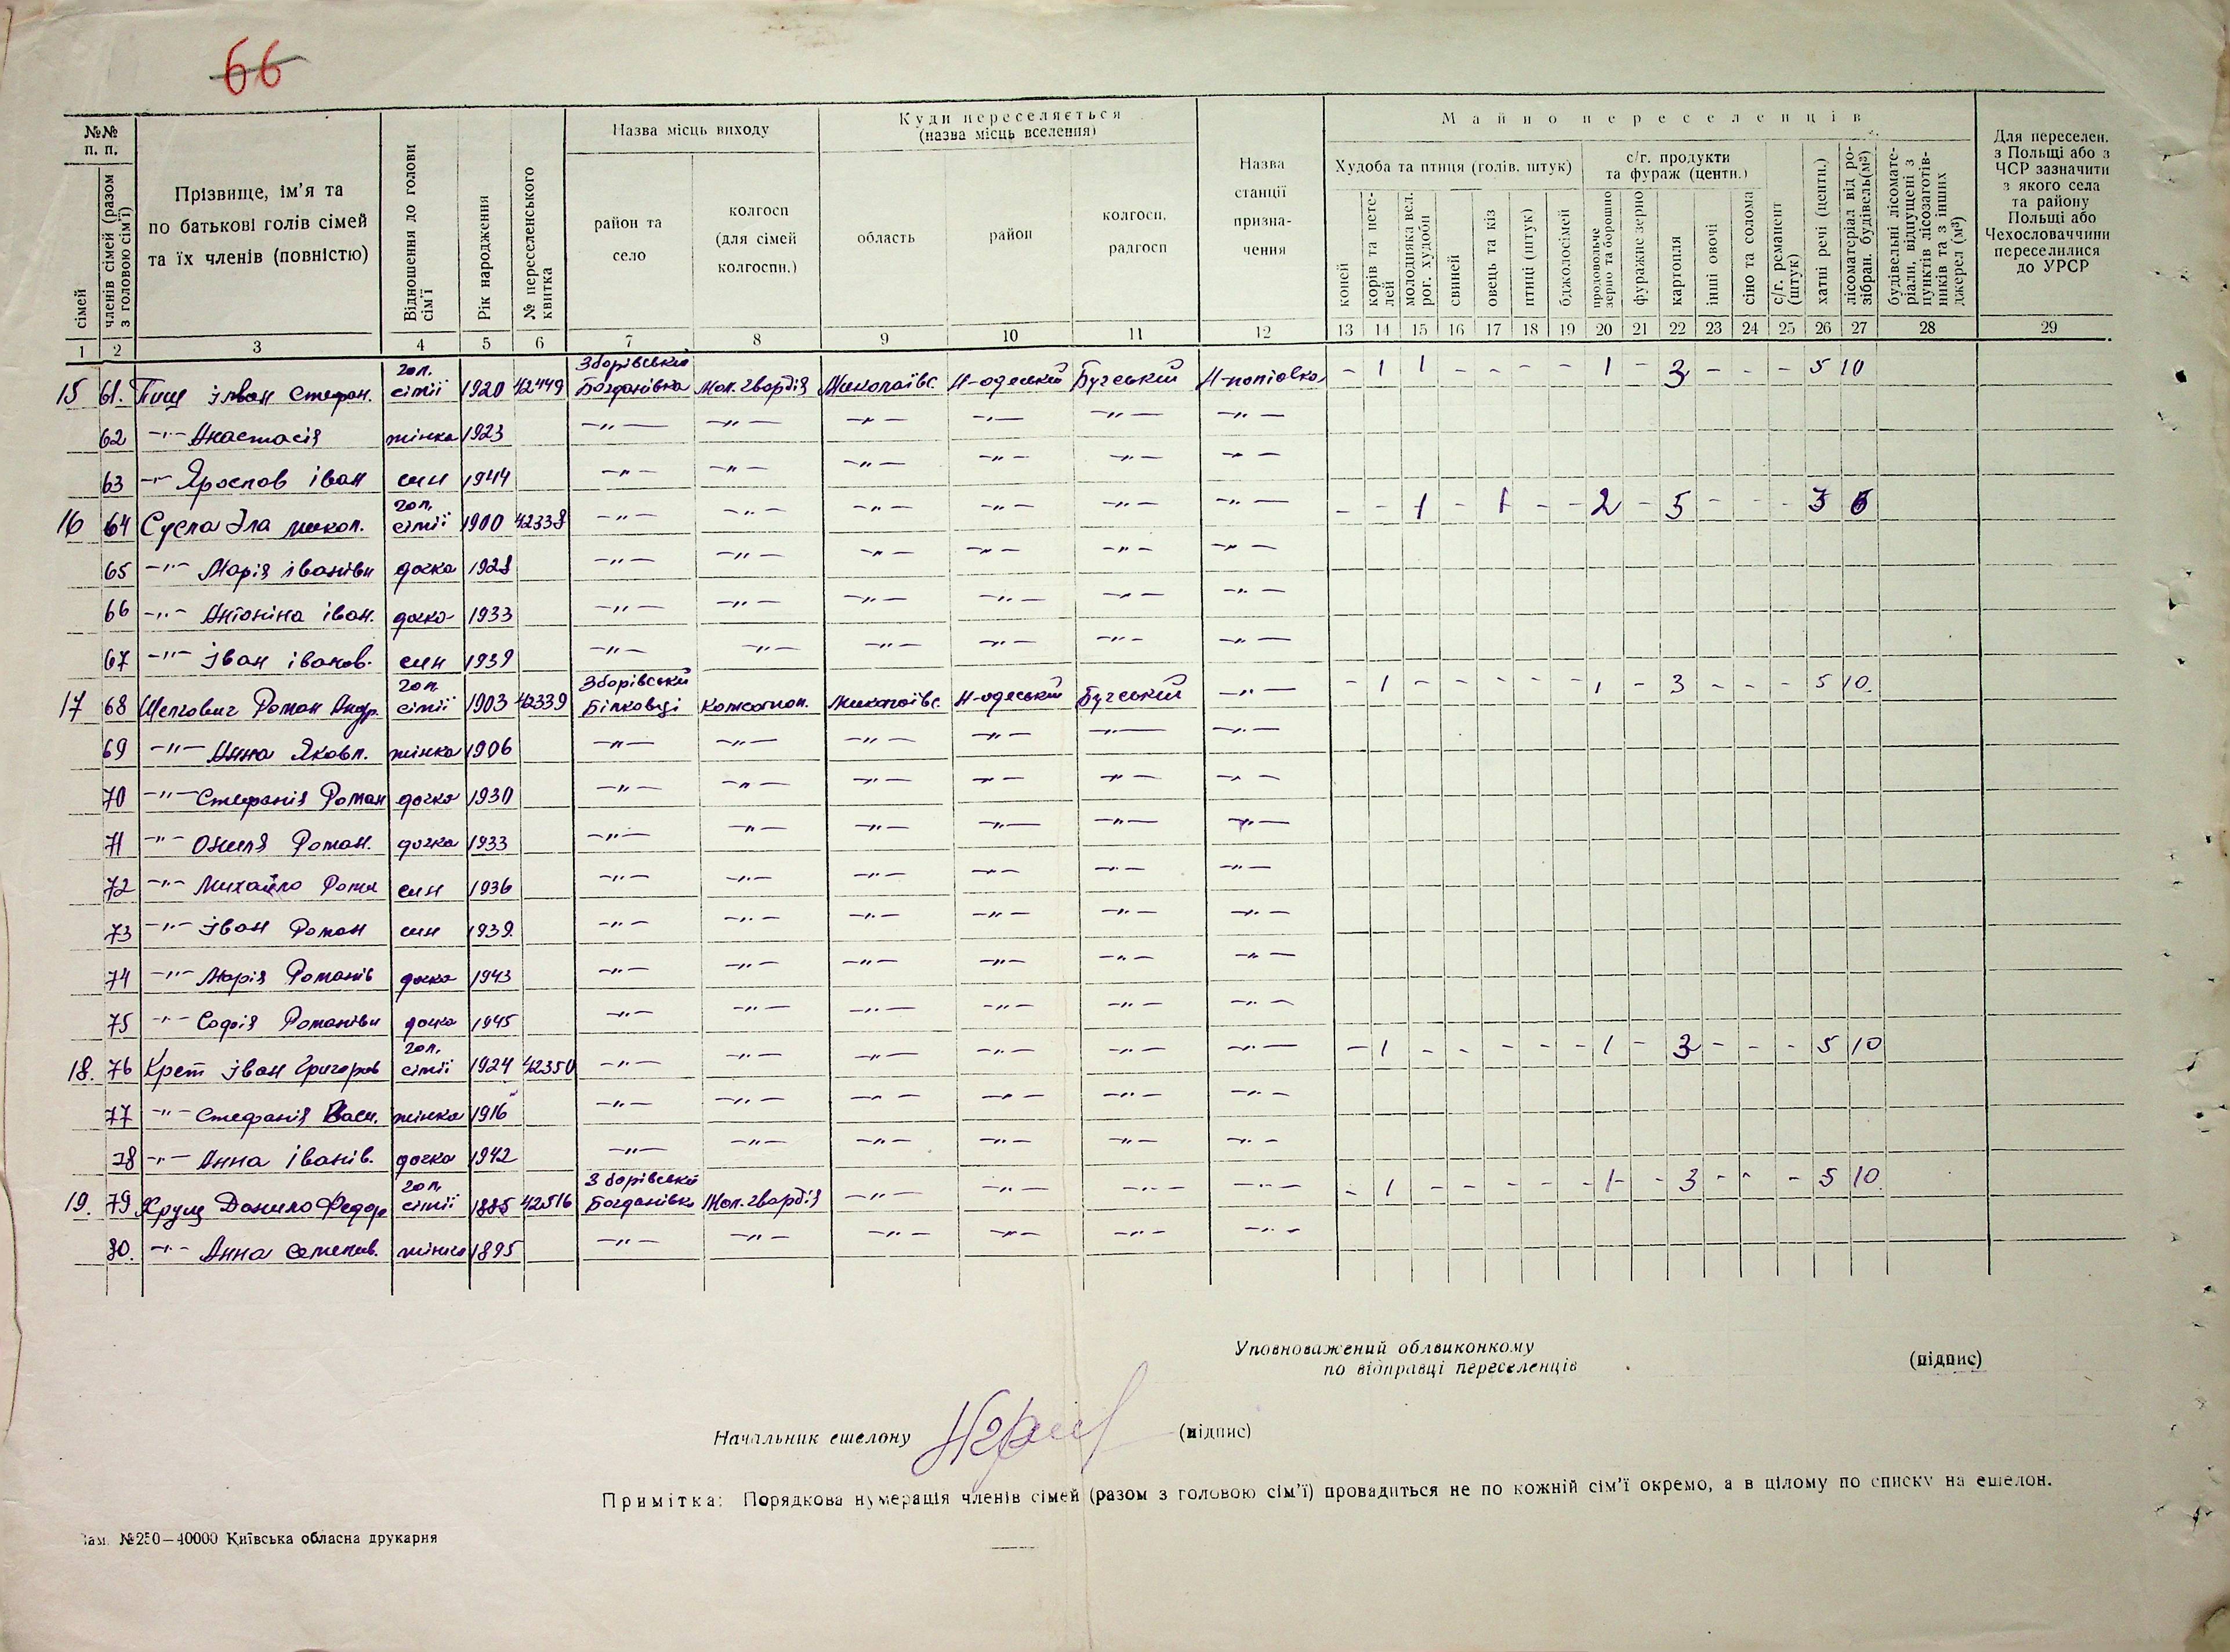 66
№№ п. п.
сімей
членів сімей (разом з головою сім'ї)
Прізвище, ім'я та по батькові голів сімей та їх членів (повністю)
Відношення до голови сім'ї
Рік народження
№ переселенського квитка
Назва місць виходу
район та село
колгосп (для сімей колгоспн.)
Куди переселяється (назва місць вселення)
область
район
колгосп, радгосп
Назва станції призна-чення
Майно переселенців
Худоба та птиця (голів, штук)
коней
корів та нете-лей
молодняка вел. рог. худоби
свиней
овець та кіз
птиці (штук)
бджолосімей
с/г. продукти та фураж (центн.)
продовольче зерно та борошно
фуражне зерно
картопля
інші овочі
сіно та солома
с/г. реманент (штук)
хатні речі (центн.)
лісоматеріал від ро-зібран. будівель(м³)
будівельні лісомате-ріали, відпущені з пунктів лісозаготів-ників та з інших джерел (м³)
Для переселен. з Польщі або з ЧСР зазначити з якого села та району Польщі або Чехословаччини переселилися до УРСР
1 2 3 4 5 6 7 8 9 10 11 12 13 14 15 16 17 18 19 20 21 22 23 24 25 26 27 28 29
15 61. Пищ Іван Стефан. гол. сімїї 1920 42449 Зборівський Богданівка Мол. гвардія Миколаївс. Н-одеський Бугський Н-полтовка - 1 1 - - - - 1 - 3 - - - 5 10
62 -"- Анастасія жінка 1923 -"- -"- -"- -"- -"- -"-
63 -"- Ярослов іван син 1944 -"- -"- -"- -"- -"- -"-
16 64 Сусла Іла микол. гол. сімїї 1900 42338 -"- -"- -"- -"- -"- -"- - - 1 - 1 - - 2 - 5 - - - 3 6
65 -"- Марія іванівн дочка 1928 -"- -"- -"- -"- -"- -"-
66 -"- Антоніна іван. дочка 1933 -"- -"- -"- -"- -"- -"-
67 -"- Іван іванов. син 1939 -"- -"- -"- -"- -"- -"-
17 68 Шелгович Роман Андр. гол. сімїї 1903 42339 Зборівський Білківці Миколаївс. Н-одеський Бугський -"- - 1 - - - - - 1 - 3 - - - 5 10.
69 -"- Анна Яковл. жінка 1906 -"- -"- -"- -"- -"- -"-
70 -"- Стефанія Роман дочка 1930 -"- -"- -"- -"- -"- -"-
71 -"- Ониля Роман. дочка 1933 -"- -"- -"- -"- -"- -"-
72 -"- Михайло Рома син 1936 -"- -"- -"- -"- -"- -"-
73 -"- Іван Роман син 1939 -"- -"- -"- -"- -"- -"-
74 -"- Марія Романів дочка 1943 -"- -"- -"- -"- -"- -"-
75 -"- Софія Романівн дочка 1945 -"- -"- -"- -"- -"- -"-
18. 76 Крет Іван Григоров гол. сімїї 1924 42350 -"- -"- -"- -"- -"- -"- - 1 - - - - - 1 - 3 - - - 5 10
77 -"- Стефанія Васи. жінка 1916 -"- -"- -"- -"- -"- -"-
78 -"- Анна іванів. дочка 1942 -"- -"- -"- -"- -"- -"-
19. 79 Хрущ Данило Федор гол. сімїї 1885 42516 Зборівський Богданівка Мол. гвардія -"- -"- -"- -"- - 1 - - - - - 1 - 3 - - - 5 10.
80. -"- Анна семенив. жінка 1895 -"- -"- -"- -"- -"- -"-
Уповноважений облвиконкому
по відправці переселенців (підпис)
Начальник ешелону (підпис)
Примітка: Порядкова нумерація членів сімей (разом з головою сім'ї) провадиться не по кожній сім'ї окремо, а в цілому по списку на ешелон.
Зам. №250—40000 Київська обласна друкарня